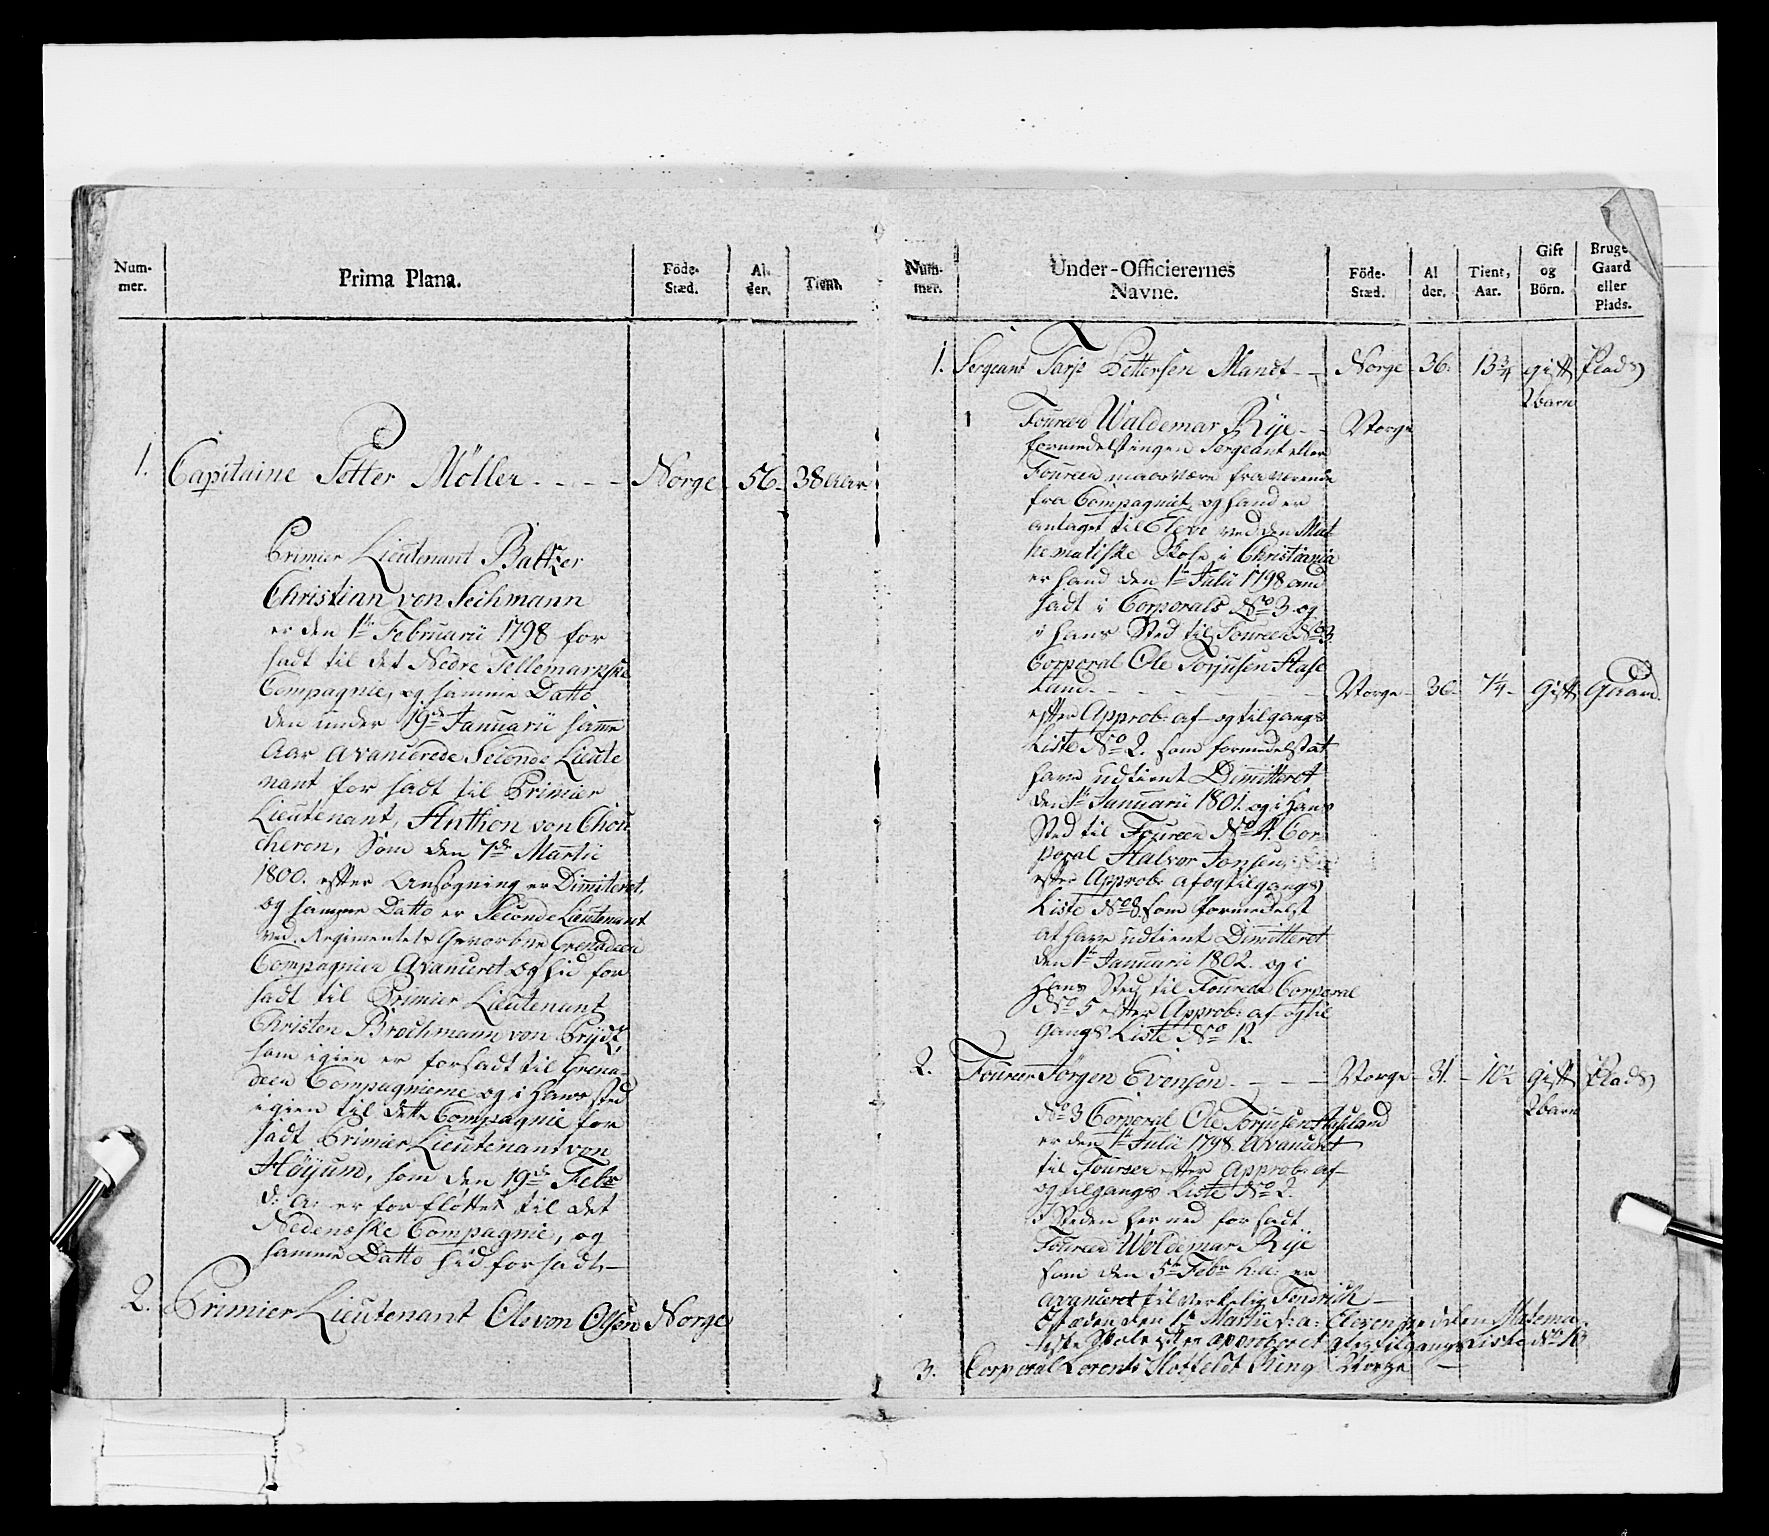 Num-
mer.
Prima Plana.
Föde-
Stæd.
Al-
der.
Tient.
1. Capitaine Petter Möller - - - - Norge 56 - 38 Aar
Primier Lieutenant Baltzer
Christian von Seihmann
er den 1te Februarii 1798 for
sadt til det Nedre Tellemarkske
Compagnie, og samme Datto
den under 19de Januarii samme
Aar Avancerede Seconde Lieute
nant for sadt til Primier
Lieutenant, Anthon von Chou
cheron, som den 7de Martii
1800. efter Ansøgning er Dimiteret,
og samme Datto er Seconde Lieutenant
ved Regimentets Gevorbne Grenadeer
Compagnier Avanceret og hid for
sadt til Primier Lieutenant
Christen Brochmann von Prydtz,
som igien er forsadt til Grena-
deer Compagnierne og i Hans sted
igien til dette Compagnie for
sadt Primier Lieutenant von
Høyum, som den 19de Febr
d: A: er forfløttet til det
Nedenæske Compagnie, og
samme Datto hid forsadt -
2. Primier Lieutenant Ole von Olsen Norge
Num-
mer.
Under-Officierernes
Navne.
Föde-
Stæd.
Al
der.
Tient,
Aar.
Gift
og
Börn.
Bruge
Gaard
eller
Plads.
1. Sergeant Tarje Pettersen Mandt - - Norge 36. 13 3/4 gift Plads
2 barn
1 Foureer Waldemar Rye - - Norge
formedelst ingen Sergeant eller
Foureer maae være fraværende
fra Compagniet, og hand er
antaget til Eleve ved den Mat
hematiske Skole i Christiania
er hand den 1te Julii 1798 om
sadt i Corporals No 3 og
i hans Sted til Foureer No 3
Corporal Ole Torjusen Hase
land - - - - - - Norge - 36 - 7 1/4 - Gift Gaard.
efter Approb: af- og tilgangs
Liste No 2. som formedelst at
have udtient Dimitteret
den 1te Januarii 1801. og i Hans
Sted til Foureer No 4. Cor
poral Halvor Jonsen
efter Approb: af og tilgangs
Liste No 8. som formedelst
at have udtient Dimitteret
den 1te Januarii 1802. og i
Hans Sted til Foureer Corporal
No 5 efter Approb: af og til
gangs Liste No 12.
2. Foureer Jørgen Evensen - - - - Norge - 31. - 10 1/2 Gift Plads
2 barn
No 3 Corporal Ole Torjusen Haseland
er den 1te Julii 1798. Avanceret
til Foureer efter Approb: af
og tilgangs Liste No 2.
i Steden her ned forsadt
Foureer Woldemar Rye
som den 5te Febr h: a: er
avanceret til virkelig Fendrich -
I Stæden den 1te Martii d: a: Eleven ved den Matema-
tiske Skole efter approberet af og tilgangs Liste No 13
3. Corporal Lorents Hatfeldt Ring Norge -